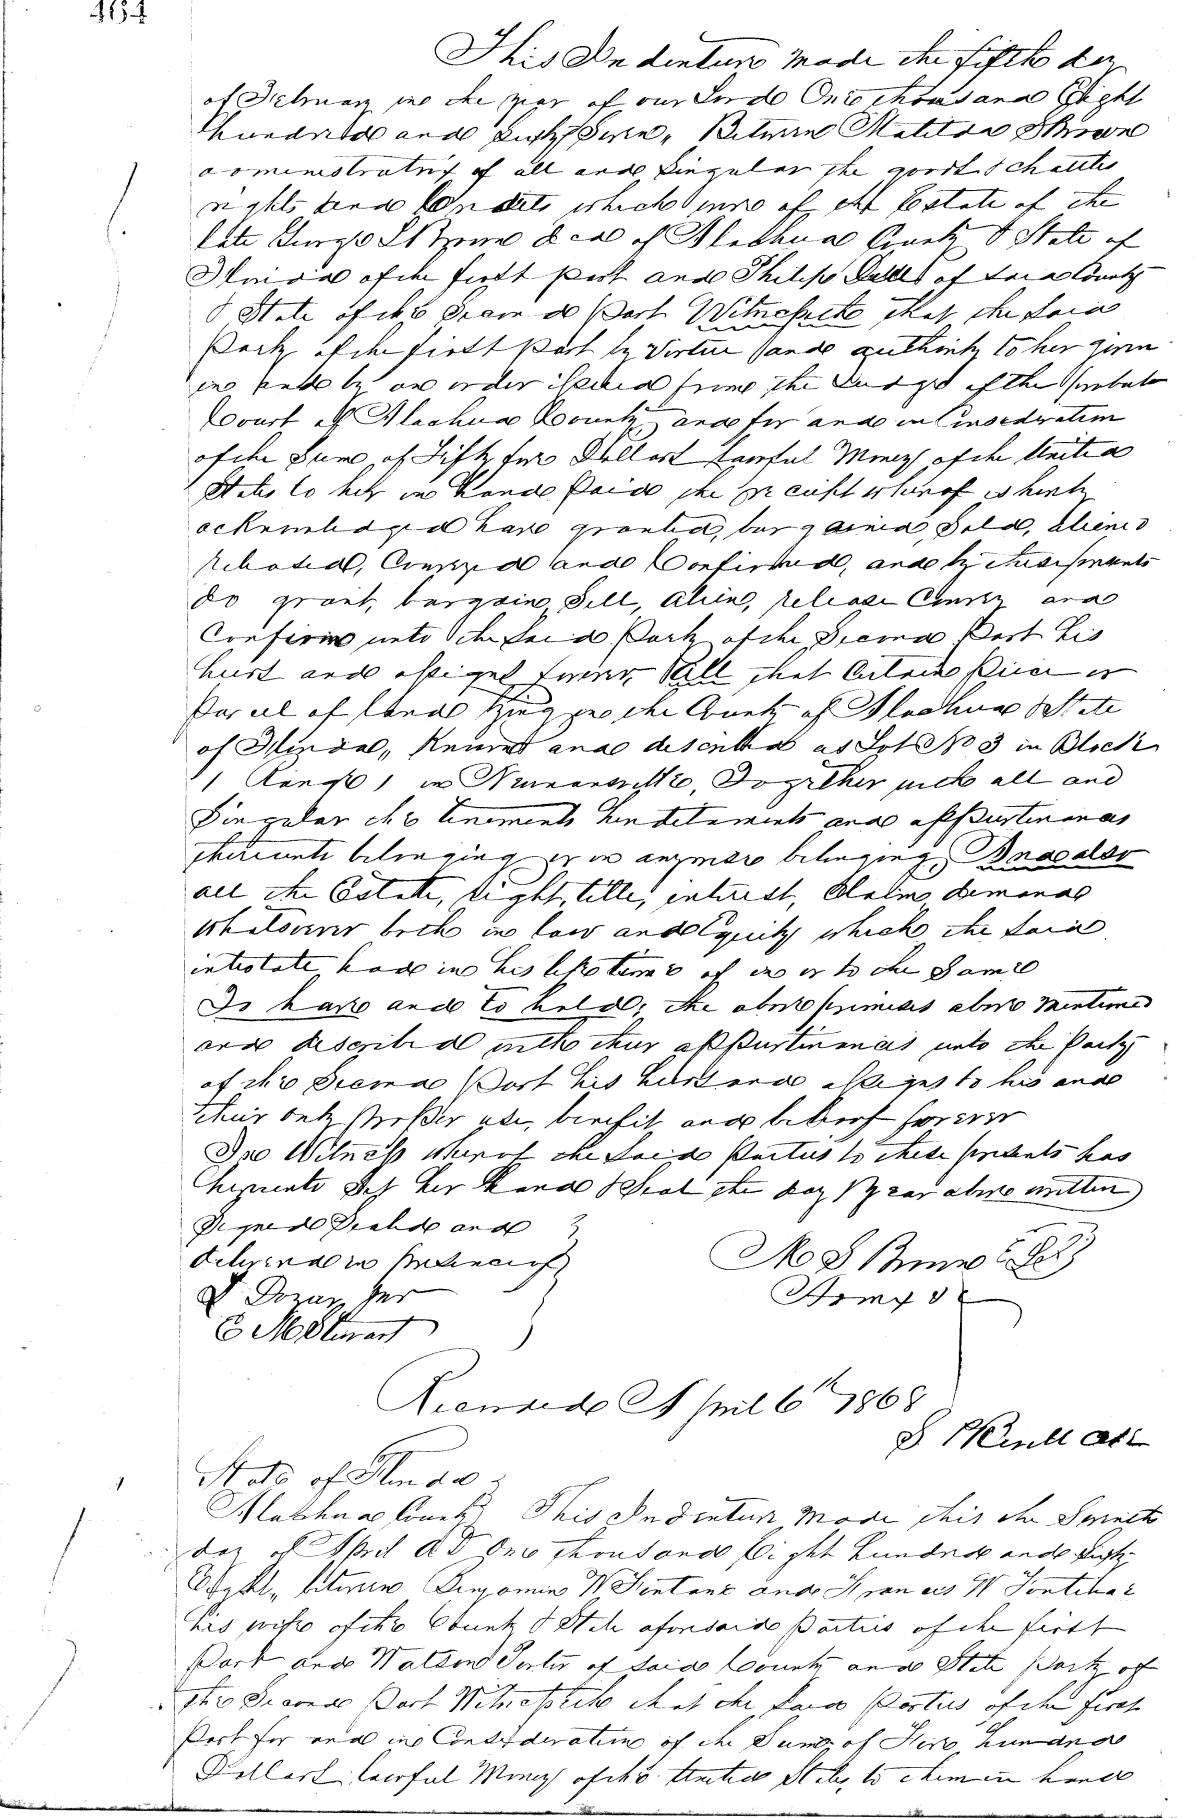 464
This Indenture made the fifth day
of February in the year of our Lord One thousand Eight
hundred and Sixty Seven, Between Matilda S Brown
administratrix of all and Singular the goods & chattles
rights and Credits which were of the Estate of the
late George L Brown decd of Alachua County & State of
Florida of the first part and Philip Dell of said County
& State of the Second Part Witnesseth that the said
Party of the first Part by Virtue and authority to her given
in and by an order issued from the Judge of the Probate
Court of Alachua County, and for and in Consideration
of the Sum of Fifty five Dollars lawful Money of the United
States to her in hand Paid the receipt whereof is hereby
acknowledged have granted, bargained, Sold, aliened
released, Conveyed and Confirmed, and by these presents
do grant, bargain, Sell, alien, release Convey and
Confirm unto the Said Party of the Second Part his
heirs and assigns forever, All that Certain Piece or
Parcel of land lying in the County of Alachua & State
of Florida, Known and described as Lot No 3 in Block
1 Range 1 in Newnansville, Together with all and
Singular the tenements hereditaments and appurtenances
thereunto belonging or in anywise belonging, And also
all the Estate, right, title, interest, Claim demand
whatsoever both in law and Equity which the Said
intestate had in his life time of in or to the Same
To have and to hold, the above premises above mentioned
and described with their appurtinances unto the Party
of the Second Part his heirs and assigns to his and
their only proper use, benefit and behoof forever
In Witness whereof the Said Parties to these presents has
hereunto Set her hand & Seal the day & year above written
Signed Sealed and
delivered in presence of
M S Brown
L Dozier
Admx
E M Stewart
Recorded April 6th 1868
State of Florida
Alachua County This Indenture made this the Seventh
day of April A D One thousand Eight hundred and Sixty
Eight, between Benjamin W Fontane and Frances W
his wife of the County & State aforesaid Parties of the first
Part and Watson Porter of Said County and State Party of
the Second Part Witnesseth that the Said Parties of the first
Part for and in Consideration of the Sum of Five hundred
Dollars lawful Money of the United States, to them in hand